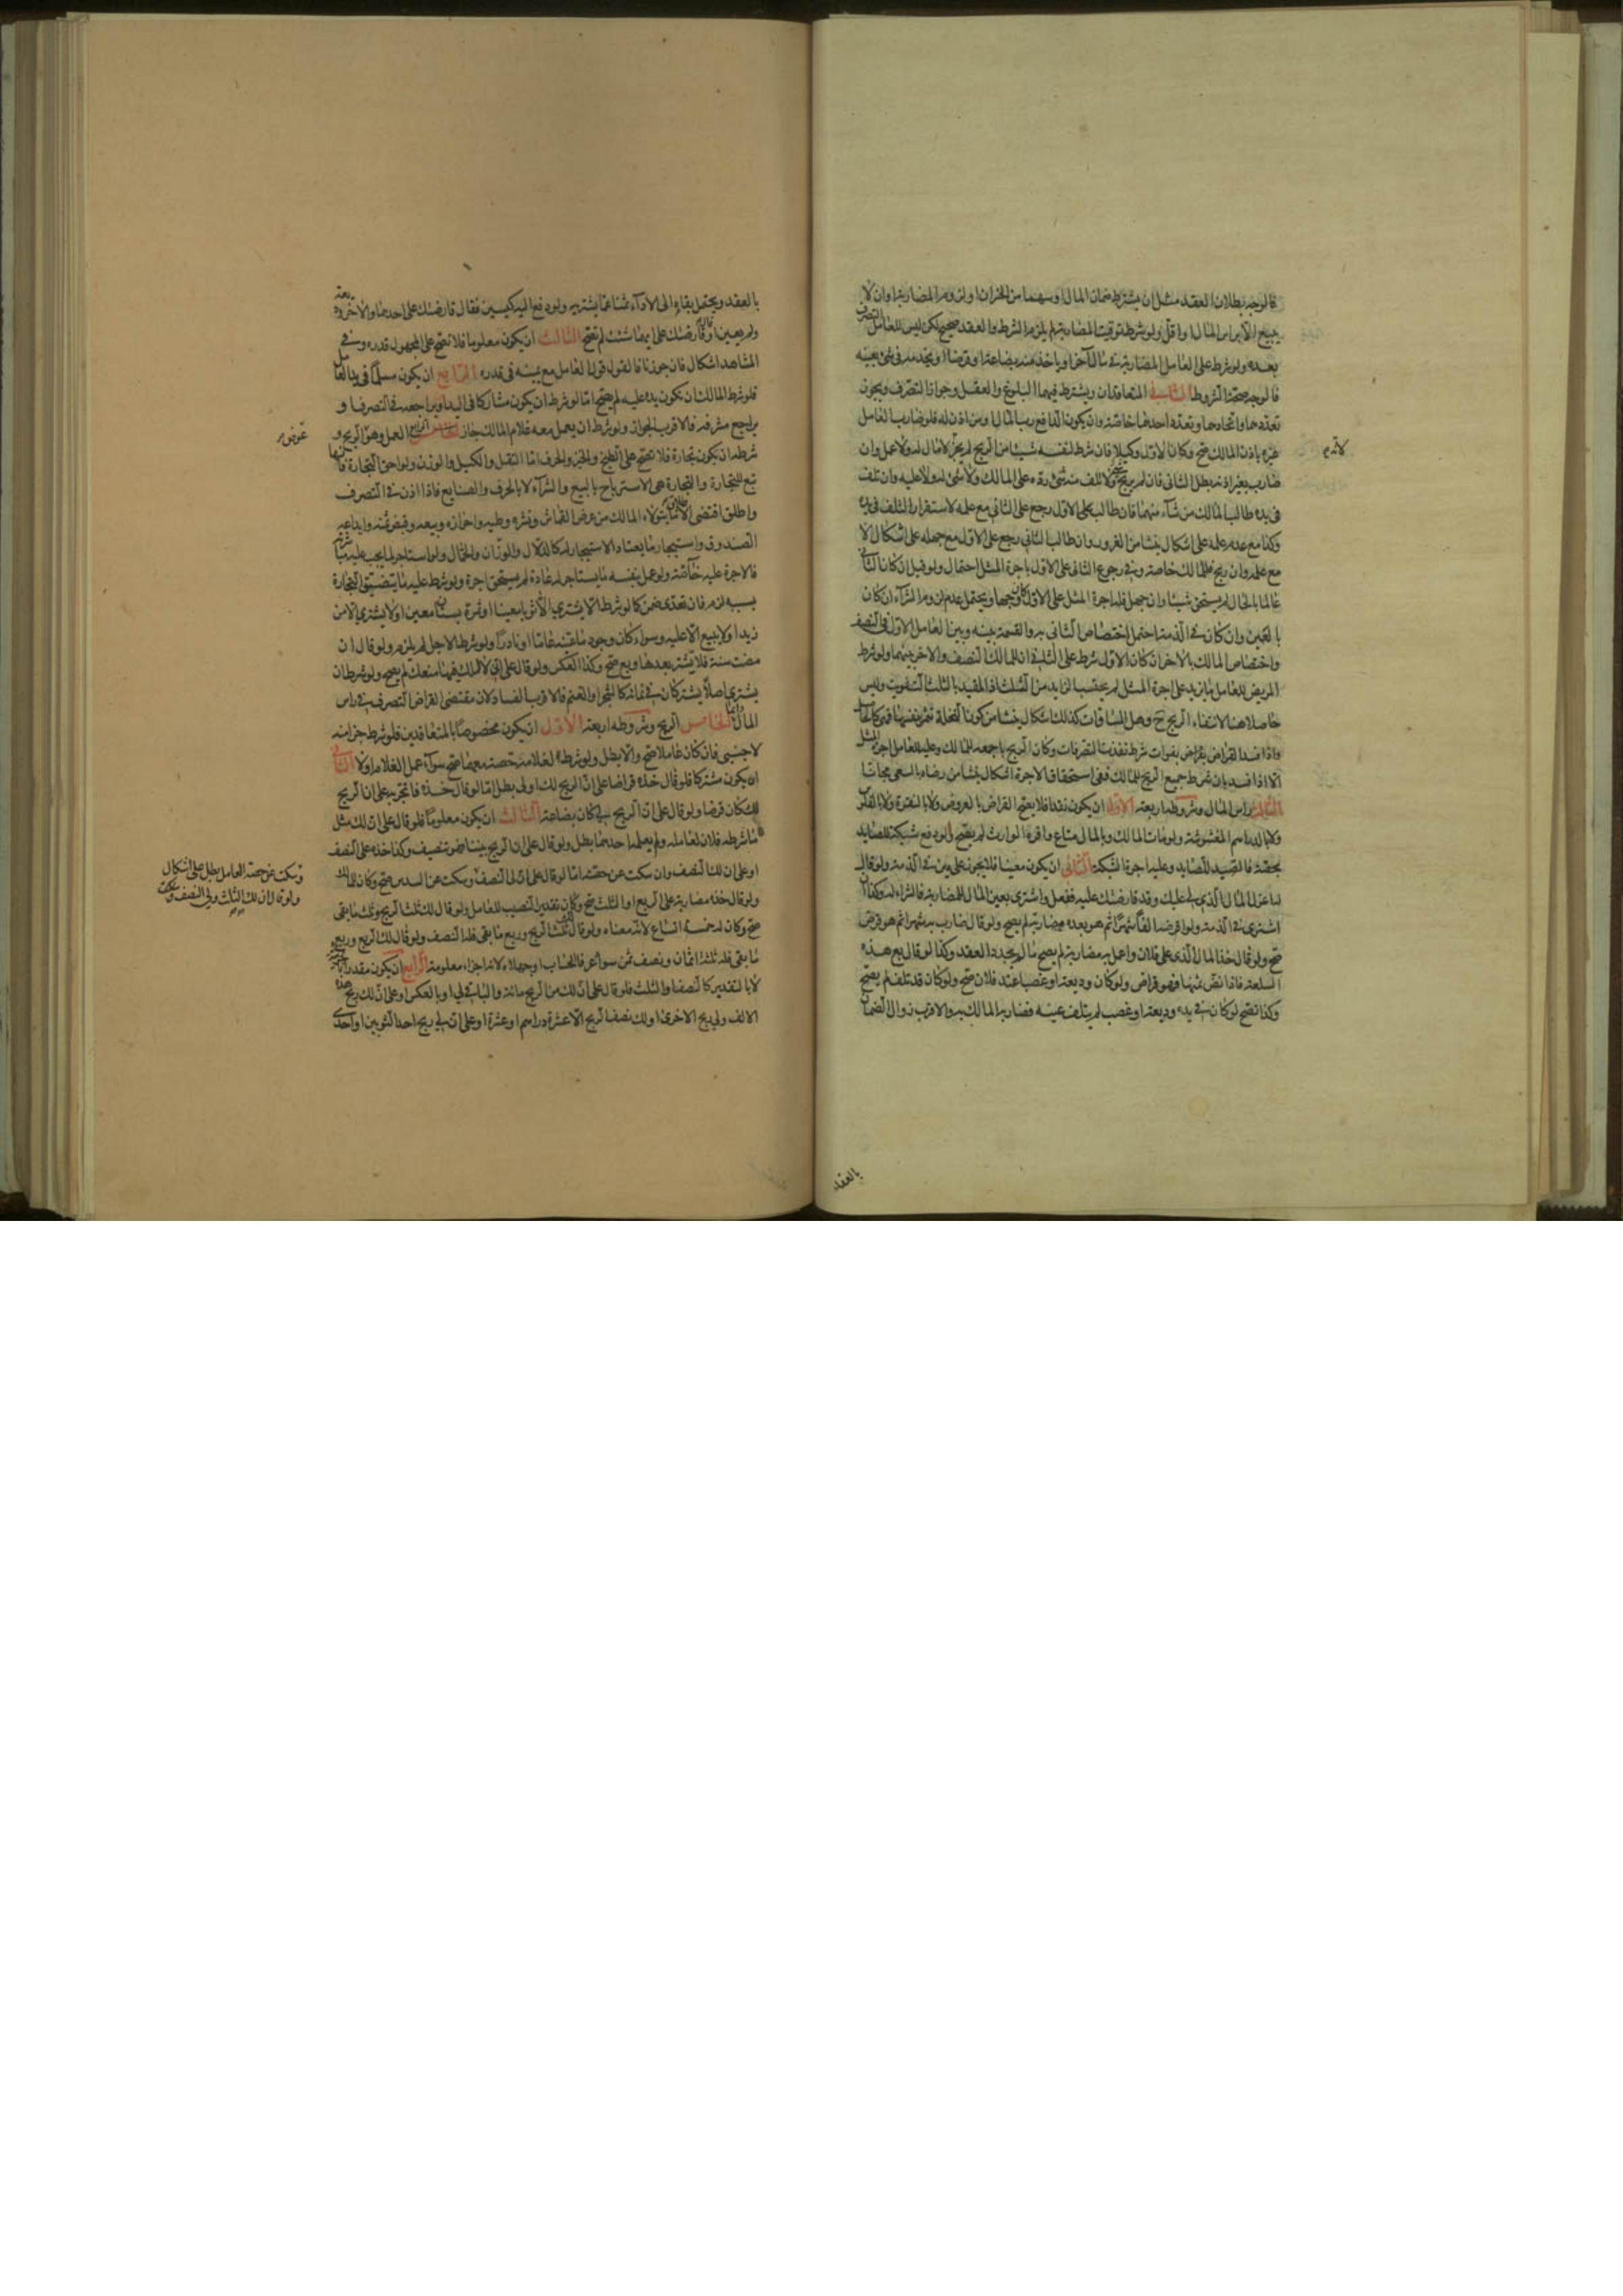 فالوجه بطلان العقد مثل ان يشترط ضمان المال او سهما من الخسران او لزوم المضاربة او ان لا
يبيع الا براس المال او اقل ولو شرط توقيت المضاربة لم يلزم الشرط والعقد صحيح لكن ليس للعامل التصرف
بعده ولو شرط على العامل المضاربة في مال آخر او ياخذ منه بضاعة او قرضا او يخدمه في شئ بعينه
فالوجه صحة الشروط الثاني المتعاقدان ويشترط فيهما البلوغ والعقل وجواز التصرف ويجوز
تعددهما واتحادهما وتعدد احدهما خاصة وان يكون الدافع رب المال او من اذن له فلو ضارب العامل
غيره باذن المالك صح وكان الاول وكيلا فان شرط لنفسه شيئا من الربح لم يجز لانه لا مال له ولا عمل وان
ضارب بغير اذنه بطل الثاني فان لم يربح ولا تلف منه شئ رده على المالك ولا شئ له ولا عليه وان تلف
في يده طالب المالك من شاء منهما فان طالب الاول رجع على الثاني مع علمه لاستقرار التلف في يده
وكذا مع عدم علمه على اشكال ينشا من الغرور وان طالب الثاني رجع على الاول مع جهله على اشكال لا
مع علمه وان ربح فللمالك خاصة وفي رجوع الثاني على الاول باجرة المثل احتمال ولو قيل ان كان الثاني
عالما بالحال لم يستحق شيئا وان جهل فله اجرة المثل على الاول كان وجها ويحتمل عدم لزوم الشراء ان كان
بالعين وان كان في الذمة احتمل اختصاص الثاني به والقسمة بينه وبين العامل الاول في النصف
واختصاص المالك بالاخر ان كان الاول شرط على الثاني ان للمالك النصف والاخر بينهما ولو شرط
المريض للعامل ما يزيد على اجرة المثل لم يحتسب الزايد من الثلث اذ المقيد بالثلث التفويت وليس
حاصلا هنا لانتفاء الربح ح وهل المساقات كذلك اشكال ينشا من كون النخلة تثمر بنفسها فهي كالحاصل
واذا فسد القراض بفوات شرط نفذت التصرفات وكان الربح باجمعه للمالك وعليه للعامل اجرة المثل
الا اذا فسد بان شرط جميع الربح للمالك ففي استحقاق الاجرة اشكال ينشا من رضاه بالسعي مجانا
الثالث راس المال وشروطه اربعة الاول ان يكون نقدا فلا يصح القراض بالعروض ولا بالنقرة ولا بالفلوس
ولا بالدراهم المغشوشة ولو مات المالك وبالمال متاع واقره الوارث لم يصح ولو دفع شبكة للصايد
بحصة فالصيد للصايد وعليه اجرة الشبكة الثاني ان يكون معينا فلا يجوز على دين في الذمة ولو قال
له اعزل المال الذي لي عليك وقد قارضتك عليه ففعل واشترى بعين المال للمضاربة فالشراء له وكذا ان
اشترى في الذمة ولو اقرضه الفا شهرا ثم هو بعده مضاربة لم يصح ولو قال ضارب به شهرا ثم هو قرض
صح ولو قال خذ المال الذي على فلان واعمل به مضاربة لم يصح ما لم يجدد العقد وكذا لو قال بع هذه
السلعة فاذا نض ثمنها فهو قراض ولو كان وديعة او غصبا عند فلان صح ولو كان قد تلف لم يصح
وكذا تصح لو كان في يده وديعة او غصب لم يتلف عينه فضاربه المالك به والاقرب زوال الضمان
بالعقد
بالعقد ويحتمل بقاءه الى الاداء ثمنا عما يشتريه ولو دفع اليه كيسين فقال قارضتك على احدهما والاخر وديعة
ولم يعين او قارضتك على ايهما شئت لم تصح الثالث ان يكون معلوما فلا تصح على المجهول قدره وفي
المشاهد اشكال فان جوزنا فالقول قول العامل مع يمينه في قدره الرابع ان يكون مسلما في يد العامل
فلو شرط المالك ان تكون يده عليه لم يصح اما لو شرط ان يكون مشاركا في اليد او يراجعه في التصرف او
يراجع مشرفه فالاقرب الجواز ولو شرط ان يعمل معه غلام المالك جاز الرابع العمل وهو عوض الربح و
شرطه ان يكون تجارة فلا تصح على الطبخ والخبز والحرف اما النقل والكيل والوزن ولواحق التجارة فانها
تبع للتجارة والتجارة هي الاسترباح بالبيع والشراء لا بالحرف والصنايع فاذا اذن في التصرف
واطلق اقتضى الاطلاق ما يتولاه المالك من عرض القماش ونشره وطيه واحرازه وبيعه وقبض ثمنه وايداعه
الصندوق واستيجار ما يعتاد الاستيجار له كالدلال والوزان والحمال ولو استاجر لما يجب عليه مباشرته
فالاجرة عليه خاصة ولو عمل بنفسه ما يستاجر له عادة لم يستحق اجرة ولو شرط عليه ما يتضيق التجارة
بسببه لزم فان تعدى ضمن كما لو شرط الا يشتري الا ثوبا معينا او ثمرة بستان معين او لا يشتري الا من
زيد او لا يبيع الا عليه وسواء كان وجود ما عينه عاما او نادرا ولو شرط الاجل لم يلزم ولو قال ان
مضت سنة فلا تشتر بعدها وبع صح وكذا العكس ولو قال على اني لا املك فيها منعك لم يصح ولو شرط ان
يشتري اصلا يشتركان في نمائه كالشجر او الغنم فالاقرب الفساد لان مقتضى القراض التصرف في راس
المال الخامس الربح وشروطه اربعة الاول ان يكون مخصوصا بالمتعاقدين فلو شرط جزا منه
لاجنبي فان كان عاملا صح والا بطل ولو شرطه لغلامه حصة معهما صح سواء عمل الغلام او لا الثاني
ان يكون مشتركا فلو قال خذه قراضا على ان الربح لك او لي بطل اما لو قال خذه فاتجر به على ان الربح
لك كان قرضا ولو قال على ان الربح لي كان بضاعة الثالث ان يكون معلوما فلو قال على ان لك مثل
ما شرطه فلان لعامله ولم يعلمه احدهما بطل ولو قال على ان الربح بيننا فهو تنصيف وكذا خذه على النصف
او على ان لك النصف وان سكت عن حصته اما لو قال على ان لي النصف وسكت عن السدس صح وكان للمالك
ولو قال خذه مضاربة على الربع او الثلث صح وكان تقدير النصيب للعامل ولو قال لك ثلث الربح وثلث ما بقي
صح وكان له خمسة اتساع لانه معناه ولو قال لك ثلث الربح وربع ما بقي فله النصف ولو قال لك الربع وربع
ما بقي فله ثلثة اثمان ونصف ثمن سواء عرفا الحساب او جهلاه لانه اجزاء معلومة الرابع ان يكون مقدرا
لا بالتقدير كالنصف او الثلث فلو قال على ان لك من الربح مائة والباقي لي او بالعكس او على ان لك ربح هذه
الالف ولي ربح الاخرى او لك نصف الربح الا عشرة دراهم او عشرة او على ان لي ربح احد الثوبين او احدى
عوض
وسكت عن حصة العامل بطل على اشكال
ولو قال ان لك الثلث ولي النصف وسكت